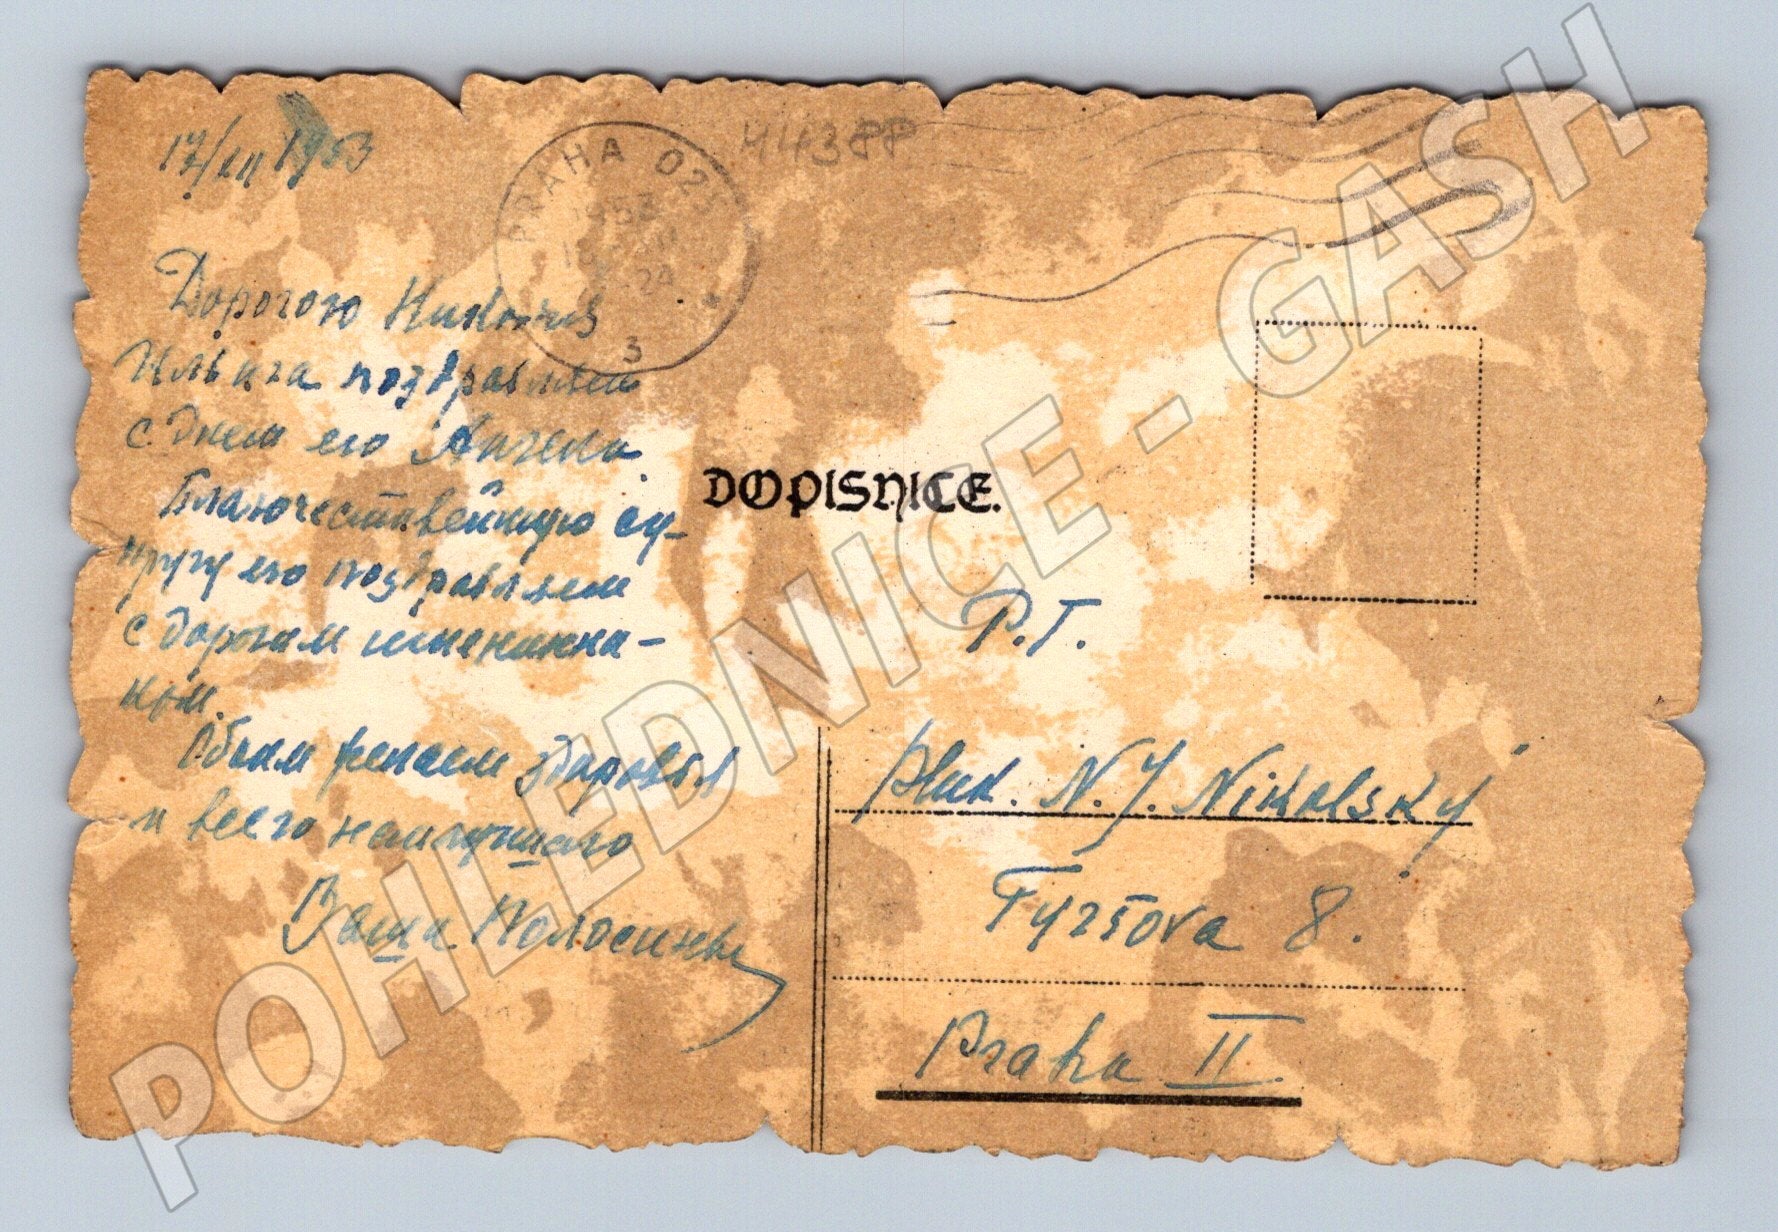 17/XII 1953
PRAHA 025
1953
24
3
44388P
Дорогого Николая
Ильича поздравляем
с днем его Ангела.
Благочестивейшую су-
пругу его поздравляем
с дорогим именинни-
ком.
Обоим желаем здоровья
и всего наилучшаго
Ваши
DOPISNICE.
P.T.
pluk. N. J. Nikolský
Tyršova 8.
Praha II.
POHLEDNICE - GASH